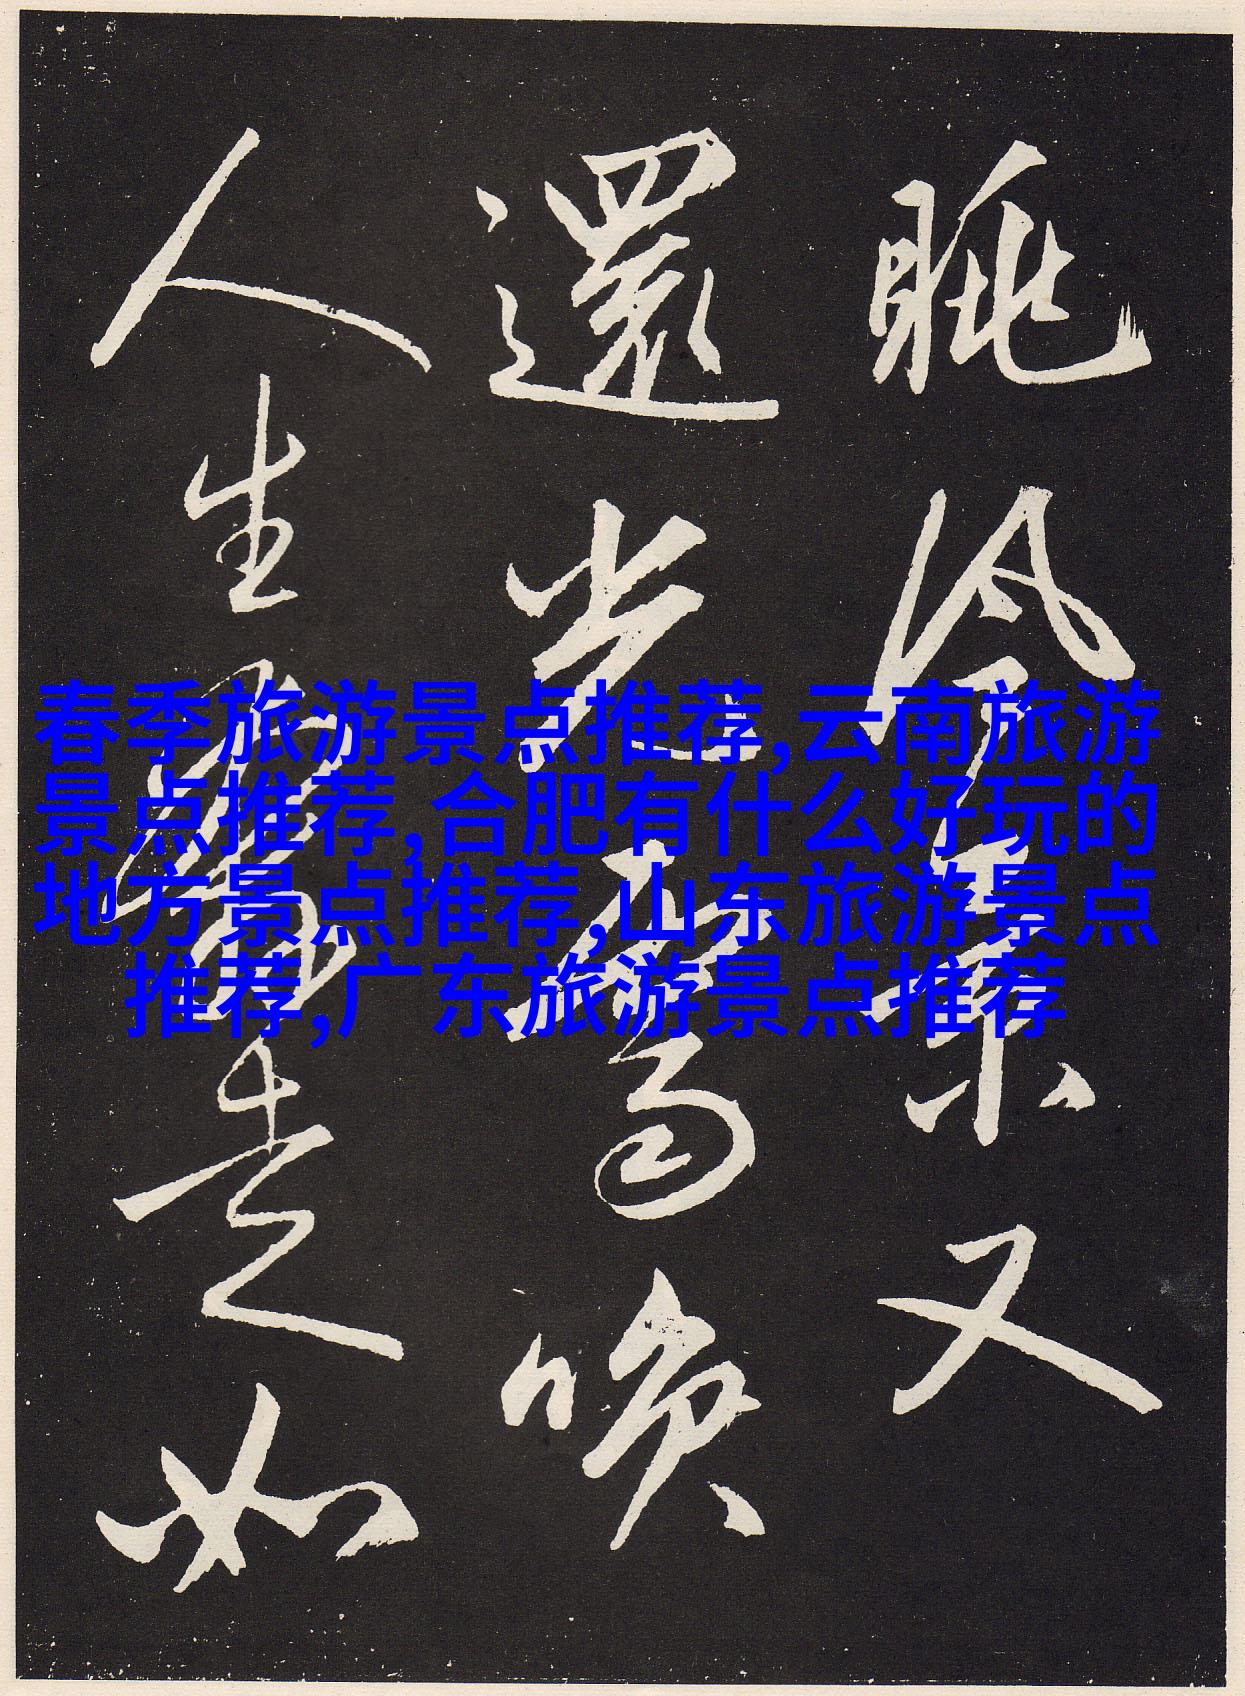 春季旅游景点推荐,云南旅游
景点推荐,合肥有什么好玩的
地方景点推荐,山东旅游景点
推荐,广东旅游景点推荐
眺又
還喚
人生如